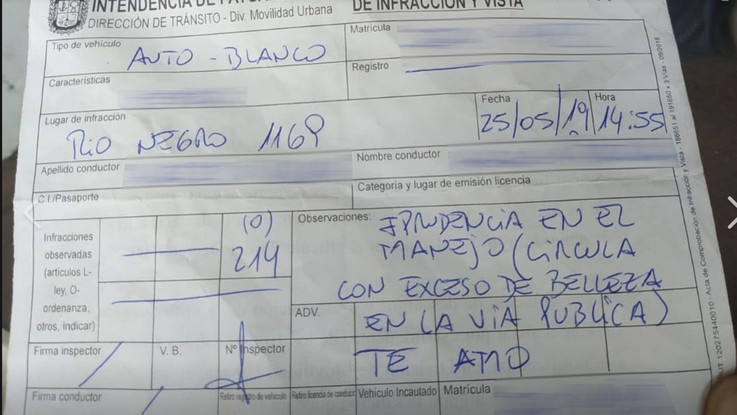 INTENDENCIA DE
DE INFRACCIÓN Y VISTA
DIRECCIÓN DE TRÁNSITO - Div. Movilidad Urbana
Tipo de vehículo
AUTO - BLANCO
Matrícula
Características
Registro
Lugar de infracción
RIO NEGRO 1169
Fecha
25/05/19
Hora
14:55
Apellido conductor
Nombre conductor
C.I./Pasaporte
Categoria y lugar de emisión licencia
Infracciones
observadas
(artículos L-
ley, O-
ordenanza,
otros, indicar)
(O)
214
Observaciones:
IPRUDENCIA EN EL
MANEJO (CIRCULA
CON EXCESO DE BELLEZA
EN LA VIA PUBLICA)
ADV.
TE AMO
Firma inspector
V. B.
Nº Inspector
Firma conductor
Retiro registro de vehículo
Retiro licencia de conducir
Vehículo Incautado
Matrícula